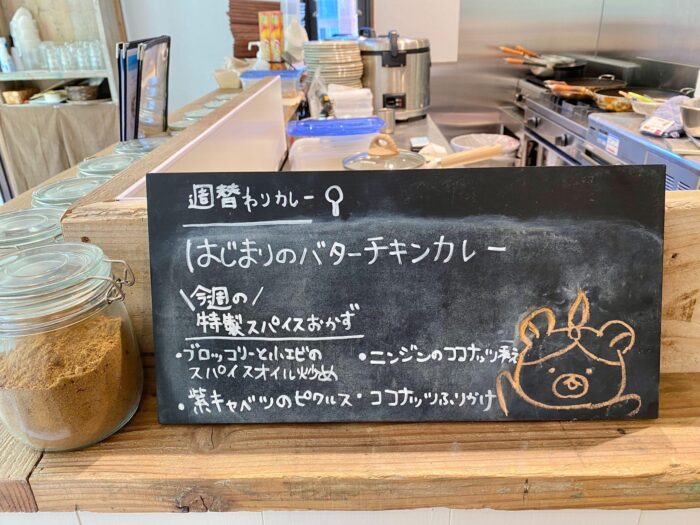 週替わりカレー
はじまりのバターチキンカレー
\今週の/
特製スパイスおかず
・ブロッコリーと小エビの
スパイスオイル炒め
・ニンジンのココナッツ和え
・紫キャベツのピクルス
・ココナッツふりかけ